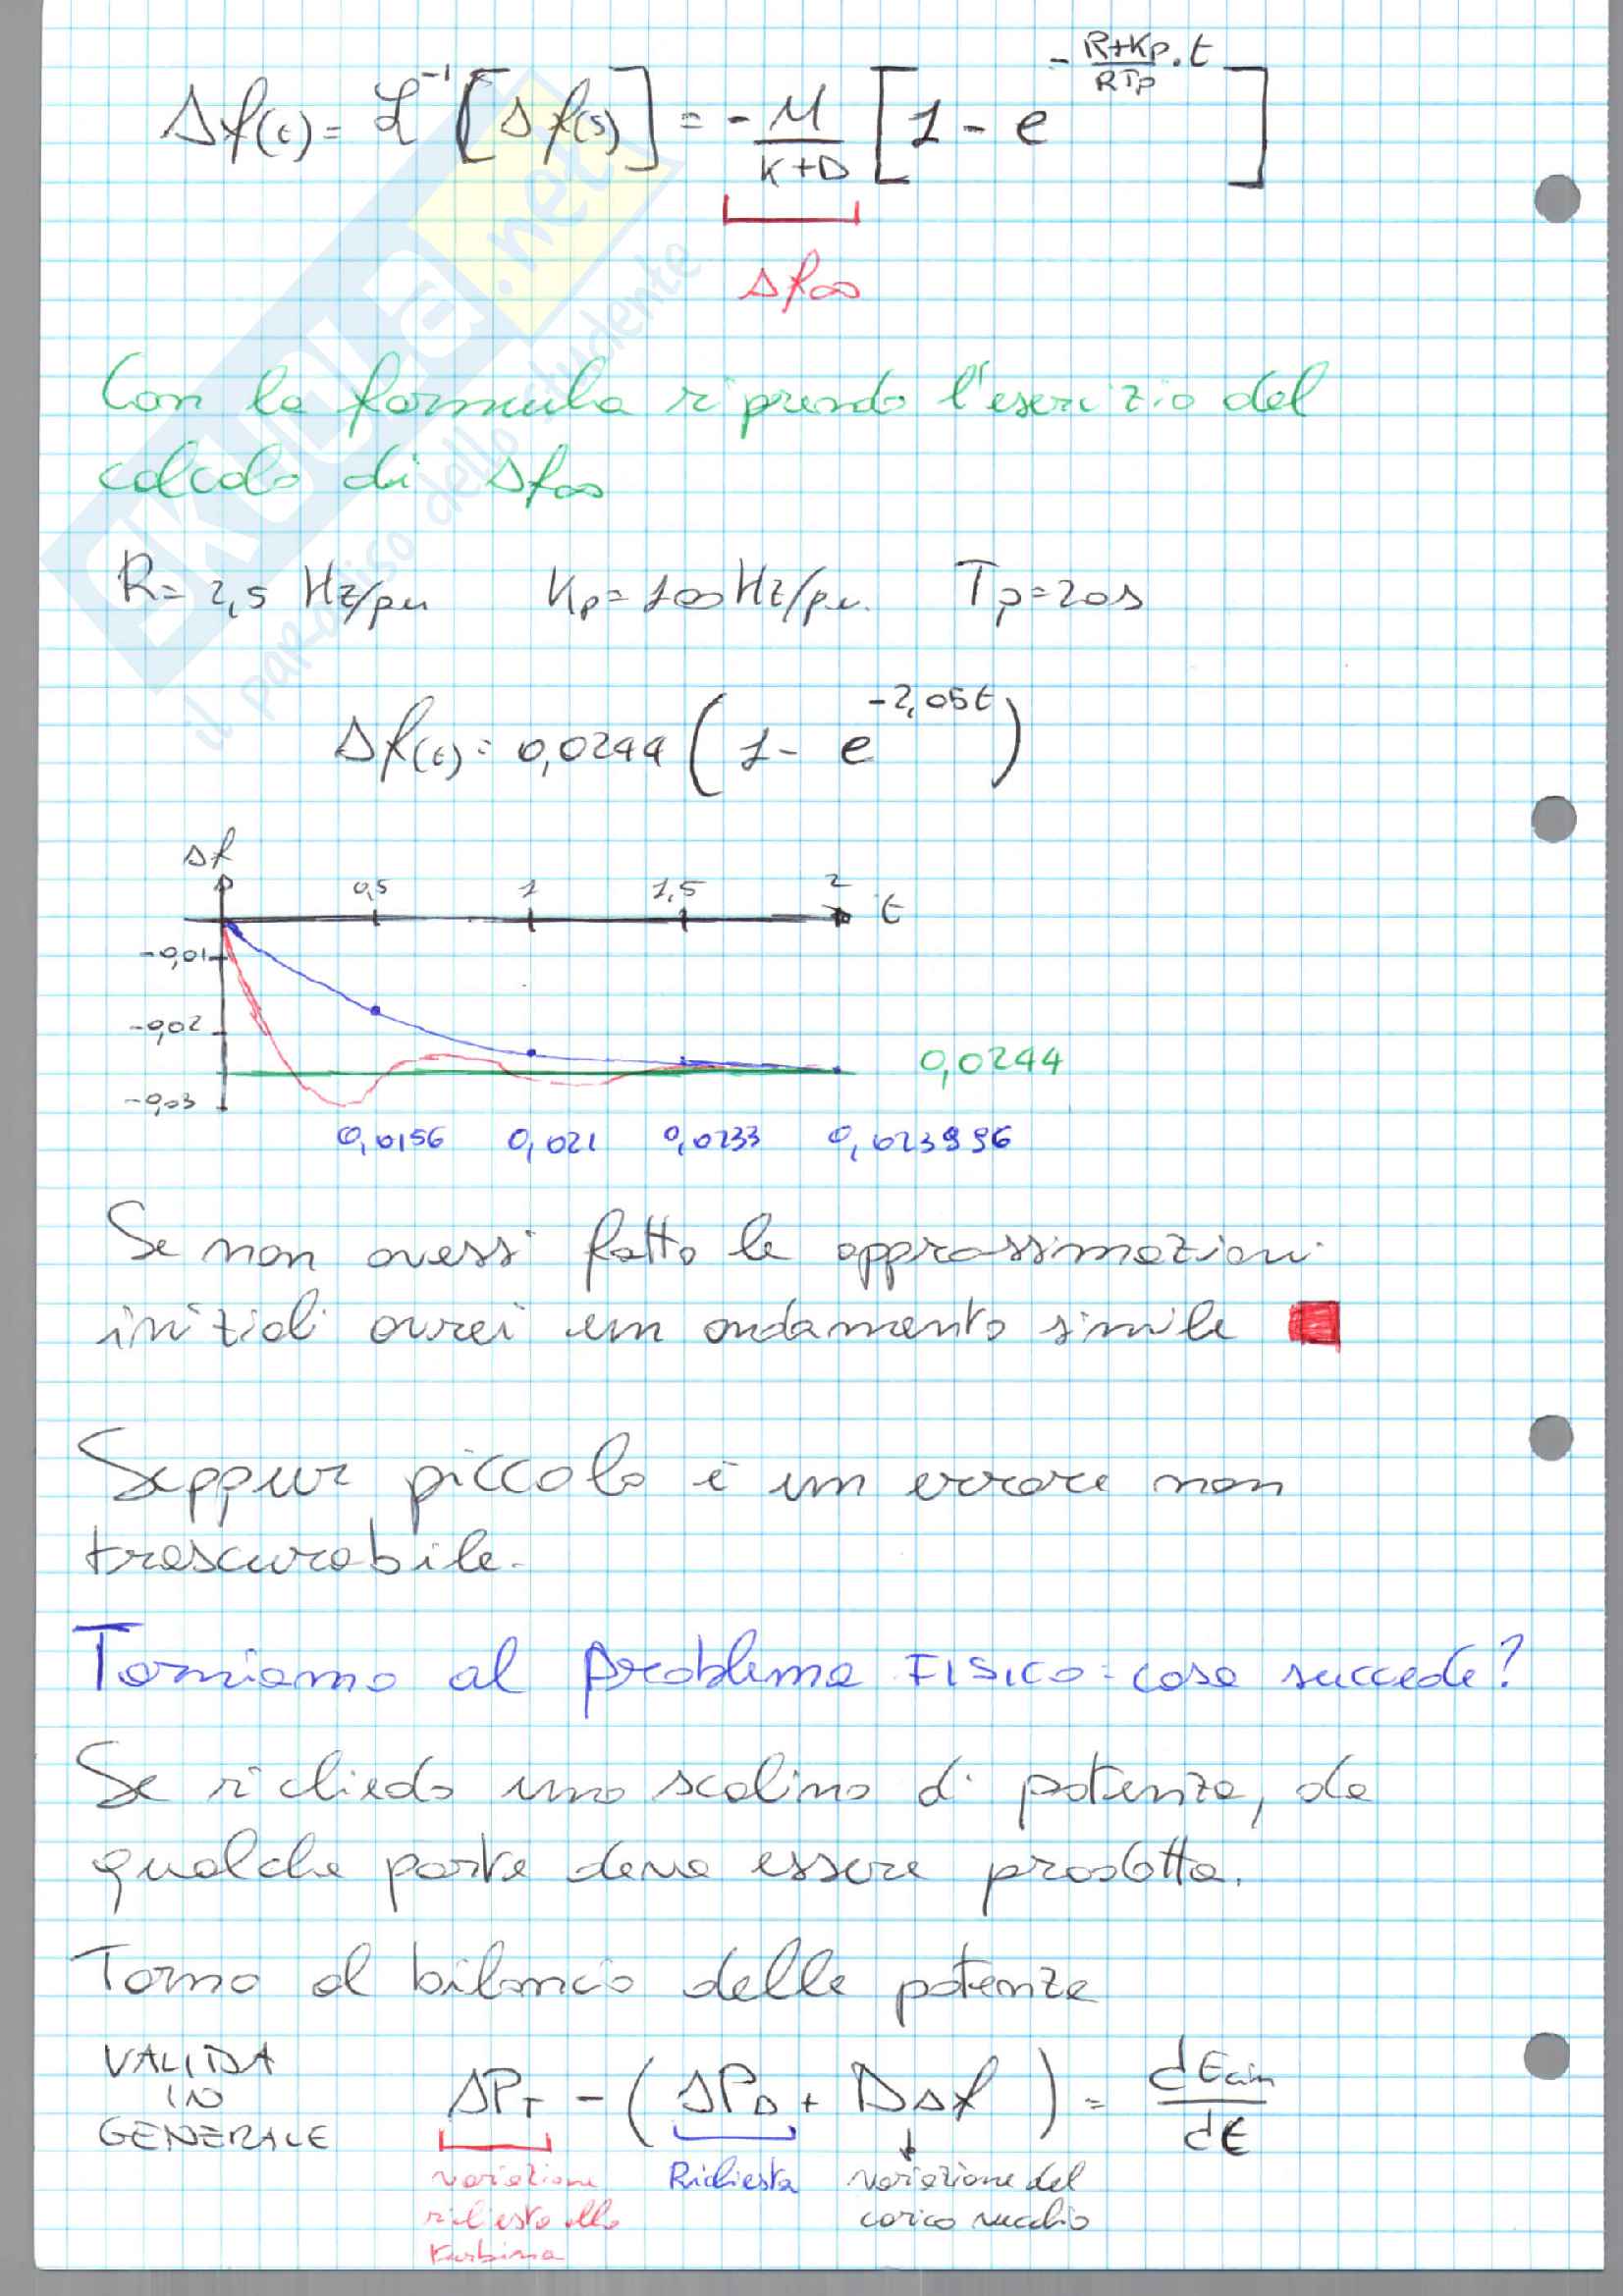 Δf(t) = ℒ⁻¹[Δf(s)] = - M/(K+D) [1 - e^(-(R+Kp)/(RTp)·t)]
Δf∞
Con la formula riprendo l'esercizio del
calcolo di Δf∞
R = 2,5 Hz/pu Kp = 100 Hz/p.u. Tp = 20s
Δf(t) = 0,0244 (1 - e^(-2,05t))
Δf
0,5 1 1,5 2 t
-0,01
-0,02
-0,03
0,0244
0,0156 0,021 0,0233 0,023996
Se non avessi fatto le approssimazioni
iniziali avrei un andamento simile
Seppur piccolo è un errore non
trascurabile.
Torniamo al problema FISICO: cosa succede?
Se richiedo uno scalino di potenza, da
qualche parte deve essere prodotta.
Torno al bilancio delle potenze
VALIDA
IN
GENERALE
ΔP_T - (ΔP_D + DΔf) = dEcin/dt
variazione
richiesta alla
turbina
Richiesta
variazione del
carico vecchio
SKUOLA.net
il paradiso dello studente